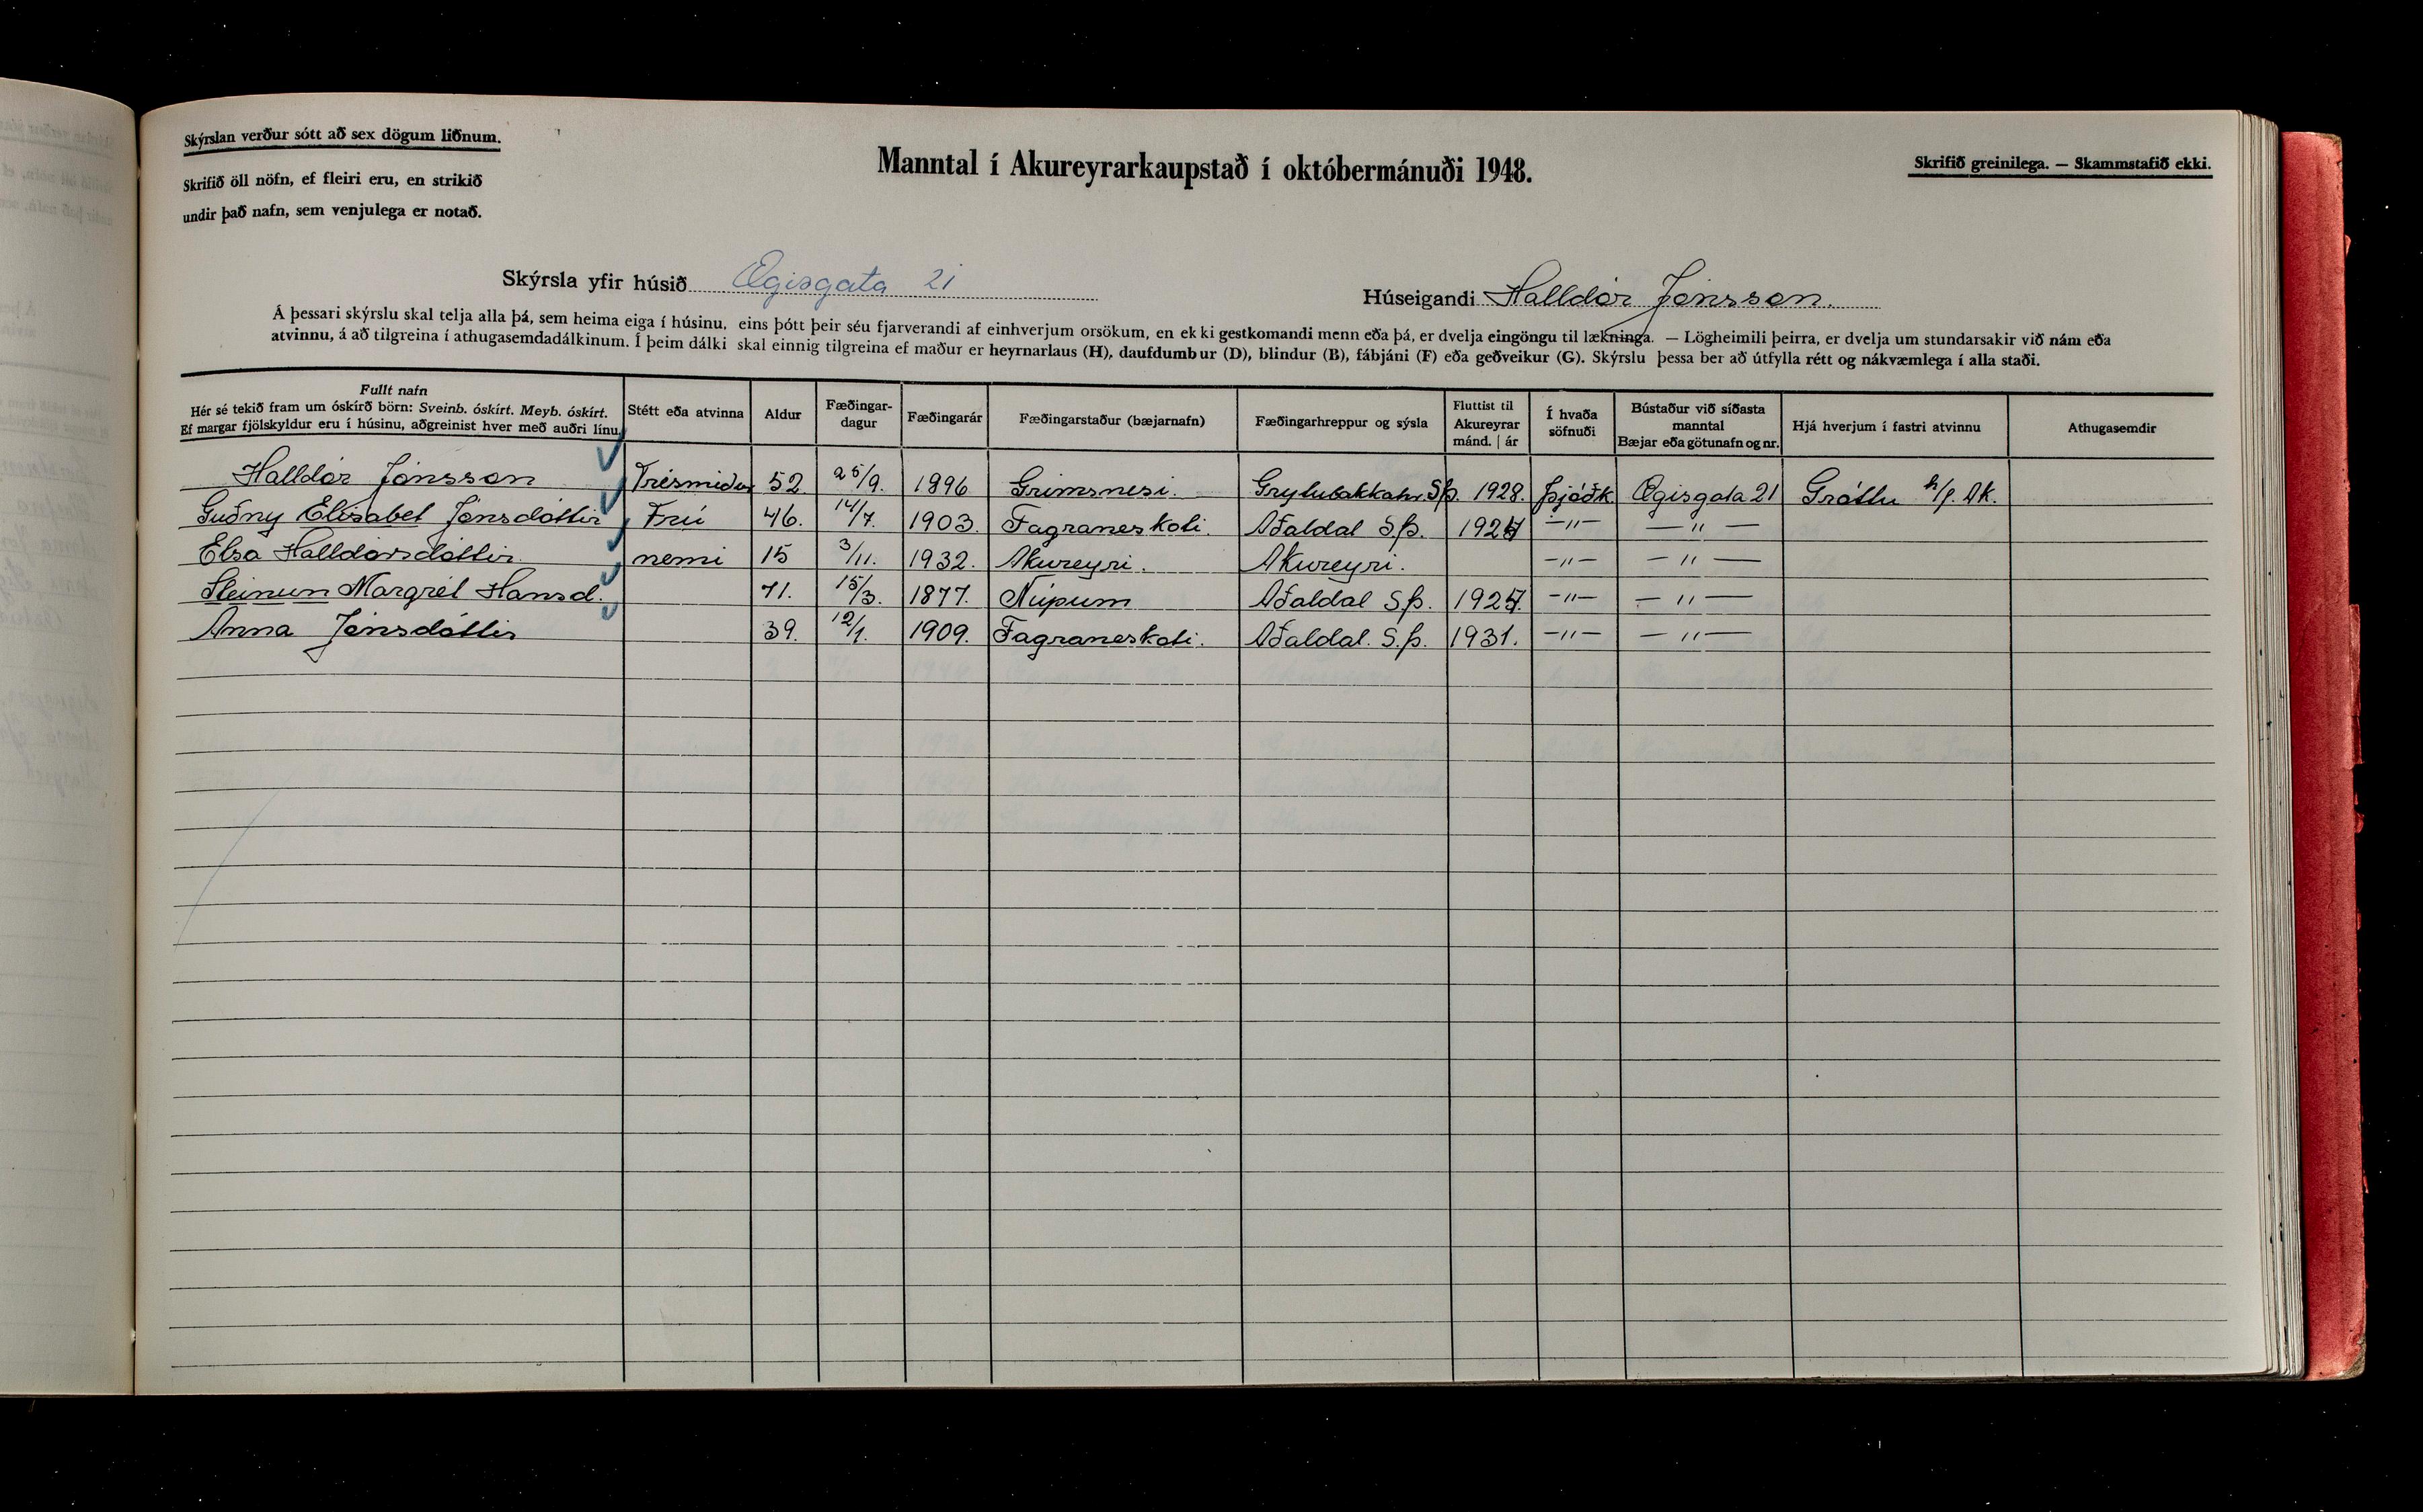 Skýrslan verður sótt að sex dögum liðnum.
Skrifið öll nöfn, ef fleiri eru, en strikið
undir það nafn, sem venjulega er notað.
Manntal í Akureyrarkaupstað í októbermánuði 1948.
Skrifið greinilega. — Skammstafið ekki.
Skýrsla yfir húsið Ægisgata 21
Húseigandi Halldór Jónsson.
Á þessari skýrslu skal telja alla þá, sem heima eiga í húsinu, eins þótt þeir séu fjarverandi af einhverjum orsökum, en ekki gestkomandi menn eða þá, er dvelja eingöngu til lækninga. — Lögheimili þeirra, er dvelja um stundarsakir við nám eða
atvinnu, á að tilgreina í athugasemdadálkinum. Í þeim dálki skal einnig tilgreina ef maður er heyrnarlaus (H), daufdumbur (D), blindur (B), fábjáni (F) eða geðveikur (G). Skýrslu þessa ber að útfylla rétt og nákvæmlega í alla staði.
Fullt nafn
Hér sé tekið fram um óskírð börn: Sveinb. óskírt. Meyb. óskírt.
Ef margar fjölskyldur eru í húsinu, aðgreinist hver með auðri línu.
Stétt eða atvinna
Aldur
Fæðingar-
dagur
Fæðingarár
Fæðingarstaður (bæjarnafn)
Fæðingarhreppur og sýsla
Fluttist til
Akureyrar
mánd. | ár
Í hvaða
söfnuði
Bústaður við síðasta
manntal
Bæjar eða götunafn og nr.
Hjá hverjum í fastri atvinnu
Athugasemdir
Halldór Jónsson Trésmiður 52 25/9. 1896 Grímsnesi. Grýtubakkahr. S.þ. 1928. Þjóðk Ægisgata 21 Gróttu h/f. Ak.
Guðny Elísabet Jónsdóttir Frú 46. 14/7. 1903. Fagraneskoti. Aðaldal S.þ. 1927 —„— —„—
Elsa Halldórsdóttir. nemi 15 3/11. 1932. Akureyri. Akureyri. —„— —„—
Steinunn Margrét Hansd. 71. 15/3. 1877. Núpum Aðaldal S.þ. 1927. —„— —„—
Anna Jónsdóttir 39. 12/1. 1909. Fagraneskoti. Aðaldal. S.þ. 1931. —„— —„—